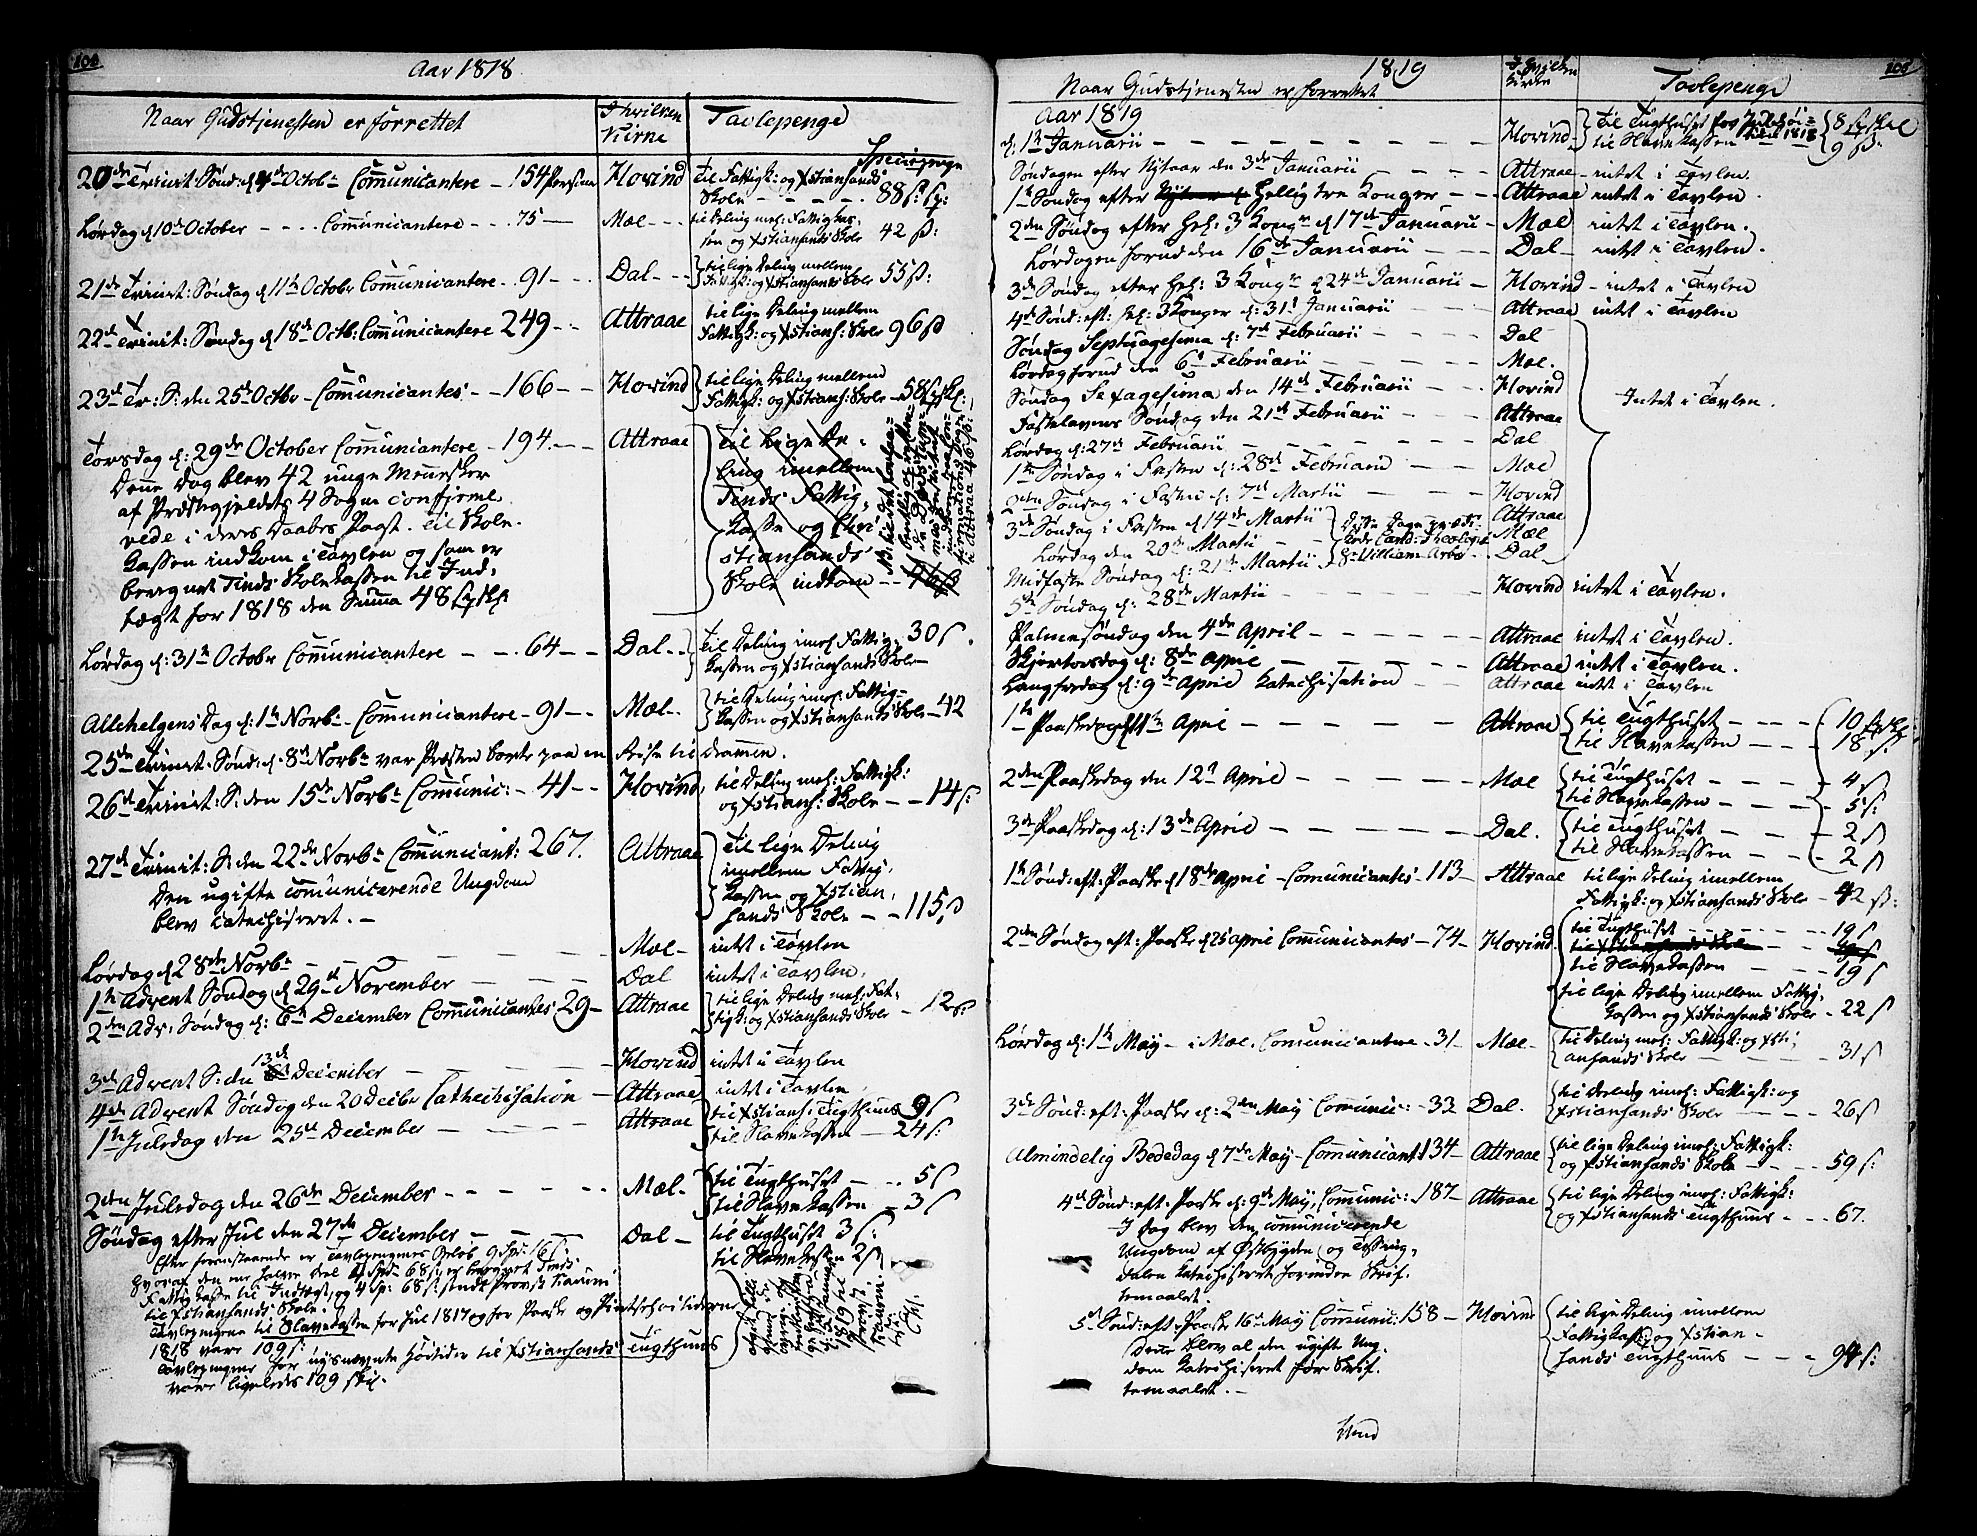 104
Aar 1818
Naar Gudstjenesten er forrettet
I hvilken Kirke
Tavlepenge
20de Trinit: Sønd: d 4de Octob: Communicantere - 154 Persner
Hovind
Til Fattigk: og Xstiansands
Skole - - - - 88 s: sp:
Lørdag d 10de October - - - - Communicantere - - - 75 -
Mæl - -
til Deling mel: Fattigkas-
sen og Xstiansands Skole 42 s:
21de Trinit: Søndag d 11te Octobr Communicantere - - 91 - -
Dal - - -
til lige Deling mellem
Fattigk: og Xstiansands Skole 55 s:
22de Trinit: Søndag d 18de Octb: Communicantere 249 - -
Attraae
til lige Deling mellem
Fattigk: og Xstians: Skole 96 s
23de Tr: S: den 25de Octbr - Communicantes - - 166 - -
Hovind
til lige Deling mellem
Fattigk: og Xstians: Skole - 58
Torsdag d: 29de October Communicantere - 194. - -
Attraae
Til lige De-
ling imellem
Tinds Fattig
Kasse og Chri
stiansands
Skole indkom - - 46 s
Denne Dag blev 42 unge Mennesker
af Præstegjeldets 4 Sogne confirme
rede i deres Daabes Pagt. Til Skole-
kassen indkom i Tavlen og som er
beregnet Tinds Skolekassen til Ind-
tægt for 1818 den Summa 48
Lørdag d: 31te Octobr Communicantere - - - 64 - -
Dal - -
til Deling imel: Fattig- 30 s.
kassen og Xstiansands Skole
Allehelgens Dag d: 1te Novbr - Communicantere - 91 - -
Mæl -
til Deling imel: Fattig-
kassen og Xstiansands Skole - 42
25de Trinit: Sønd: d: 8de Novbr var Præsten borte paa en Reise til Drammen.
26de Trinit: S: den 15de Novbr Communic: - 41 - -
Hovind
til Deling mel: Fattigk:
og Xstians: Skole - - 14 s:
27de Trinit: S: den 22de Novbr Communicant: 267.
Attraae
Til lige Deling
imellem Fattig-
kassen og Xstian-
sands Skole - - 115 s
Den ugifte communicerende Ungdom
blev catechiseret. -
Lørdag d 28de Novbr - - - -
Mæl -
intet i Tavlen
1te Advent Søndag d 29de November - - -
Dal
intet i Tavlen.
2den Adv: Søndag d: 6te December Communicantes 29 -
Attraae
til lige Deling mel: Fat-
tigk: og Xstiansands Skole - 12 s:
3de Advent S: den 13de December - - - -
Hovind
intet i Tavlen
4de Advent Søndag den 20 Decbr Cathechisation -
Attraae
intet i Tavlen
1te Juledag den 25de December - - - - -
Attraae
til Xstians: Tugthuus 9 s
til Slavekassen - 24 s:
2den Juledag den 26de December - - - - -
Mæl -
til Tugthuset - - 5 s
til Slavekassen - 3 s
Søndag efter Jul den 27de December - - -
Dal -
til Tugthuset 3 s:
til Slavekassen 2 s
Fattigkasse til Indtægt, og 4 Sp: 68 s: sendt Provst
til Xstiansands Skole.
Tavlepengene til Slavekassen for Jul 1817 og for Paaske og Pintsehøitiderne
1818 vare 109 s:
Tavlepengene for nysnævnte Høitider til Xstiansands Tugthuus
vare ligeledes 109 skil.
105
1819
Naar Gudstjenesten er forrettet
I hvilken Kirke
Tavlepenge
Aar 1819
d: 1te Januarii - - - - - - - -
Hovind -
til Tugthuset for Julehøi-
til Slavekassen tiden 1818
8
9 s:
Søndagen efter Nytaar den 3de Januarii - - - -
Attraae -
intet i Tavlen.
1te Søndag efter Hellig tre Konger - - -
Attraae
intet i Tavlen.
2den Søndag efter Hel: 3 Kong: d 17de Januarii -
Mæl
intet i Tavlen.
Lørdagen forud den 16de Januarii - - - -
Dal -
intet i Tavlen.
3de Søndag efter Hel: 3 Kong: d 24de Januarii -
Hovind -
intet i Tavlen
4de Sønd: eft: Hel: 3 Konger d: 31te Januarii - - - -
Attraae
intet i Tavlen
Søndag Septuagesima d: 7de Februarii - - - -
Dal
Lørdag forud den 6te Februarii - - - - -
Mæl.
Søndag Sexagesima den 14de Februarii - - -
Hovind
Intet i Tavlen.
Fastelavens Søndag den 21de Februarii - - -
Attraae
Lørdag d: 27de Februarii - - - - - -
Dal
1te Søndag i Fasten d: 28de Februarii - - -
Mæl
2den Søndag i Fasten d: 7de Martii - - - -
Hovind
3de Søndag i Fasten d 14de Martii
Attraae
Lørdag den 20de Martii - -
Mæl
Midfaste Søndag d: 21de Martii
Dal
Disse Dage prædi-
kede Cand: Theologiæ
Hr: William Arbo -
5te Søndag d: 28de Martii - - - - - -
Hovind
intet i Tavlen.
Palmesøndag den 4de April - - - - -
Attraae
intet i Tavlen.
Skjertorsdag d: 8de April - - - - -
Attraae
intet i Tavlen.
Langfredag d: 9de April Katechisation - - -
Attraae
intet i Tavlen
1te Paaskedag d: 11te April - - - - - -
Attraae
til Tugthuset - - - - 10
til Slavekassen - - - 18 s
2den Paaskedag den 12te April - - - - - -
Mæl
til Tugthuset - - - - 4 s
til Slavekassen - - - - 5 s:
3de Paaskedag d: 13de April - - - - - -
Dal.
til Tugthuset - - - - 2 s
til Slavekassen - - - 2 s
1te Sønd: eft: Paaske d 18de April - Communicantes - 113 -
Attraae
til lige Deling imellem
Fattigk: og Xstiansands Skole - 42 s:
2den Søndag eft: Paaske d 25 April Communicantes - 74 -
Hovind
til Tugthuset - - - - - 19 s
til Slavekassen - - - - 19 s
til lige Deling imellem Fattig-
kassen og Xstiansands Skole - 22 s
Lørdag d: 1te May - i Mæl. Communicantere - 31 -
Mæl -
til Deling mel: Fattigk: og Xsti-
ansands Skole - - - - 31 s
3de Sønd: eft: Paaske d: 2den May Communic: - 33
Dal.
til Deling imel: Fattigk: og
Xstiansands Skole - - - - 26 s
Almindelig Bededag d 7de May - Communicant: 134 -
Attraae
til lige Deling imel: Fattigk:
og Xstiansands Skole - - - 59 s:
4de Sønd: eft: Paaske d: 9de May, Communic: 187 -
Attraae
til lige Deling imel: Fattigk:
og Xstiansands Tugthuus - - - 67.
I Dag blev den communicerende
Ungdom af Østbygden og Tessung-
dalen Katechiseret forinden Skrif-
temaalet.
5te Sønd: eft: Paaske 16de May Communic: 158 -
Hovind
til lige Deling imellem
Fattigkassen og Xstian-
sands Tugthuus - - - 94 s:
Dere blev al den ugifte Ung-
dom Katechiseret før Skrif-
temaalet. -